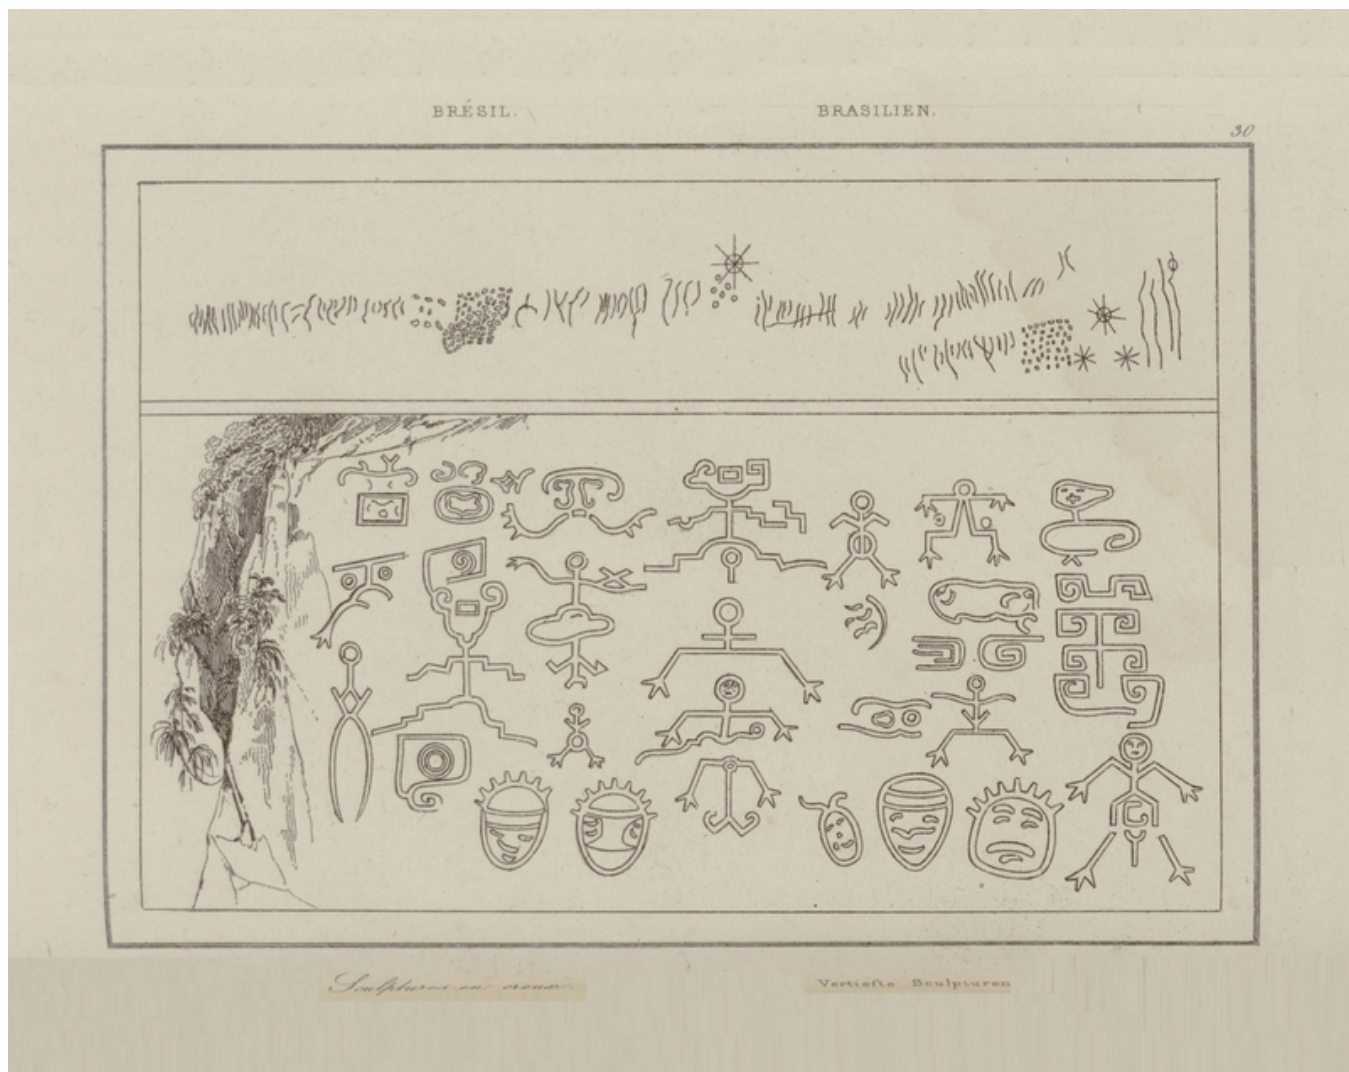 BRÉSIL. BRASILIEN.
30
Sculptures en creux.
Vertiefte Sculpturen